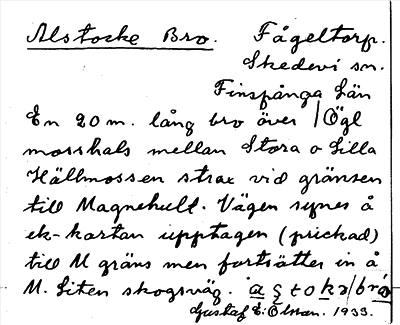 Alstocke Bro. Fågeltorp.
Skedevi sn.
Finspånga Län
En 20 m. lång bro över /Ögl
mosshals mellan Stora o Lilla
Hällmossen strax vid gränsen
till Magnehult. Vägen synes å
ek-kartan upptagen (prickad)
till M gräns men fortsätter in å
M. Liten skogsväg.
Gustaf E: Olsson. 1933.